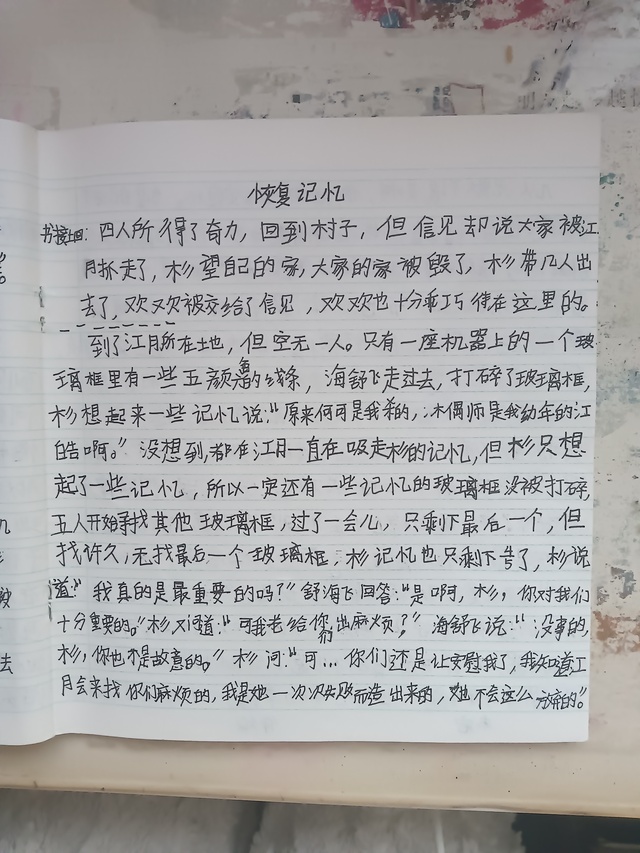 恢复记忆
书接上回：四人所得了奇力，回到村子，但信见却说大家被江
月抓走了，杉望自己的家，大家的家被毁了，杉带几人出
去了，欢欢被交给了信见，欢欢也十分乖巧待在这里的。
到了江月所在地，但空无一人。只有一座机器上的一个玻
璃框里有一些五颜六色的线条，海舒飞走过去，打碎了玻璃框，
杉想起来一些记忆说：“原来何可是我杀的，木偶师是我幼年的江
皓啊。”没想到，都在江月一直在吸走杉的记忆，但杉只想
起了一些记忆，所以一定还有一些记忆的玻璃框没被打碎，
五人开始寻找其他玻璃框，过了一会儿，只剩下最后一个，但
找许久，无找最后一个玻璃框，杉记忆也只剩下半了，杉说
道：“我真的是最重要的吗？”舒海飞回答：“是啊，杉，你对我们
十分重要的。”杉又问道：“可我老给你们出麻烦？”海舒飞说：“没事的，
杉，你也不是故意的。”杉问：“可…你们还是让安慰我了，我知道江
月会来找你们麻烦的，我是她一次次失败而造出来的，她不会这么放弃的。”